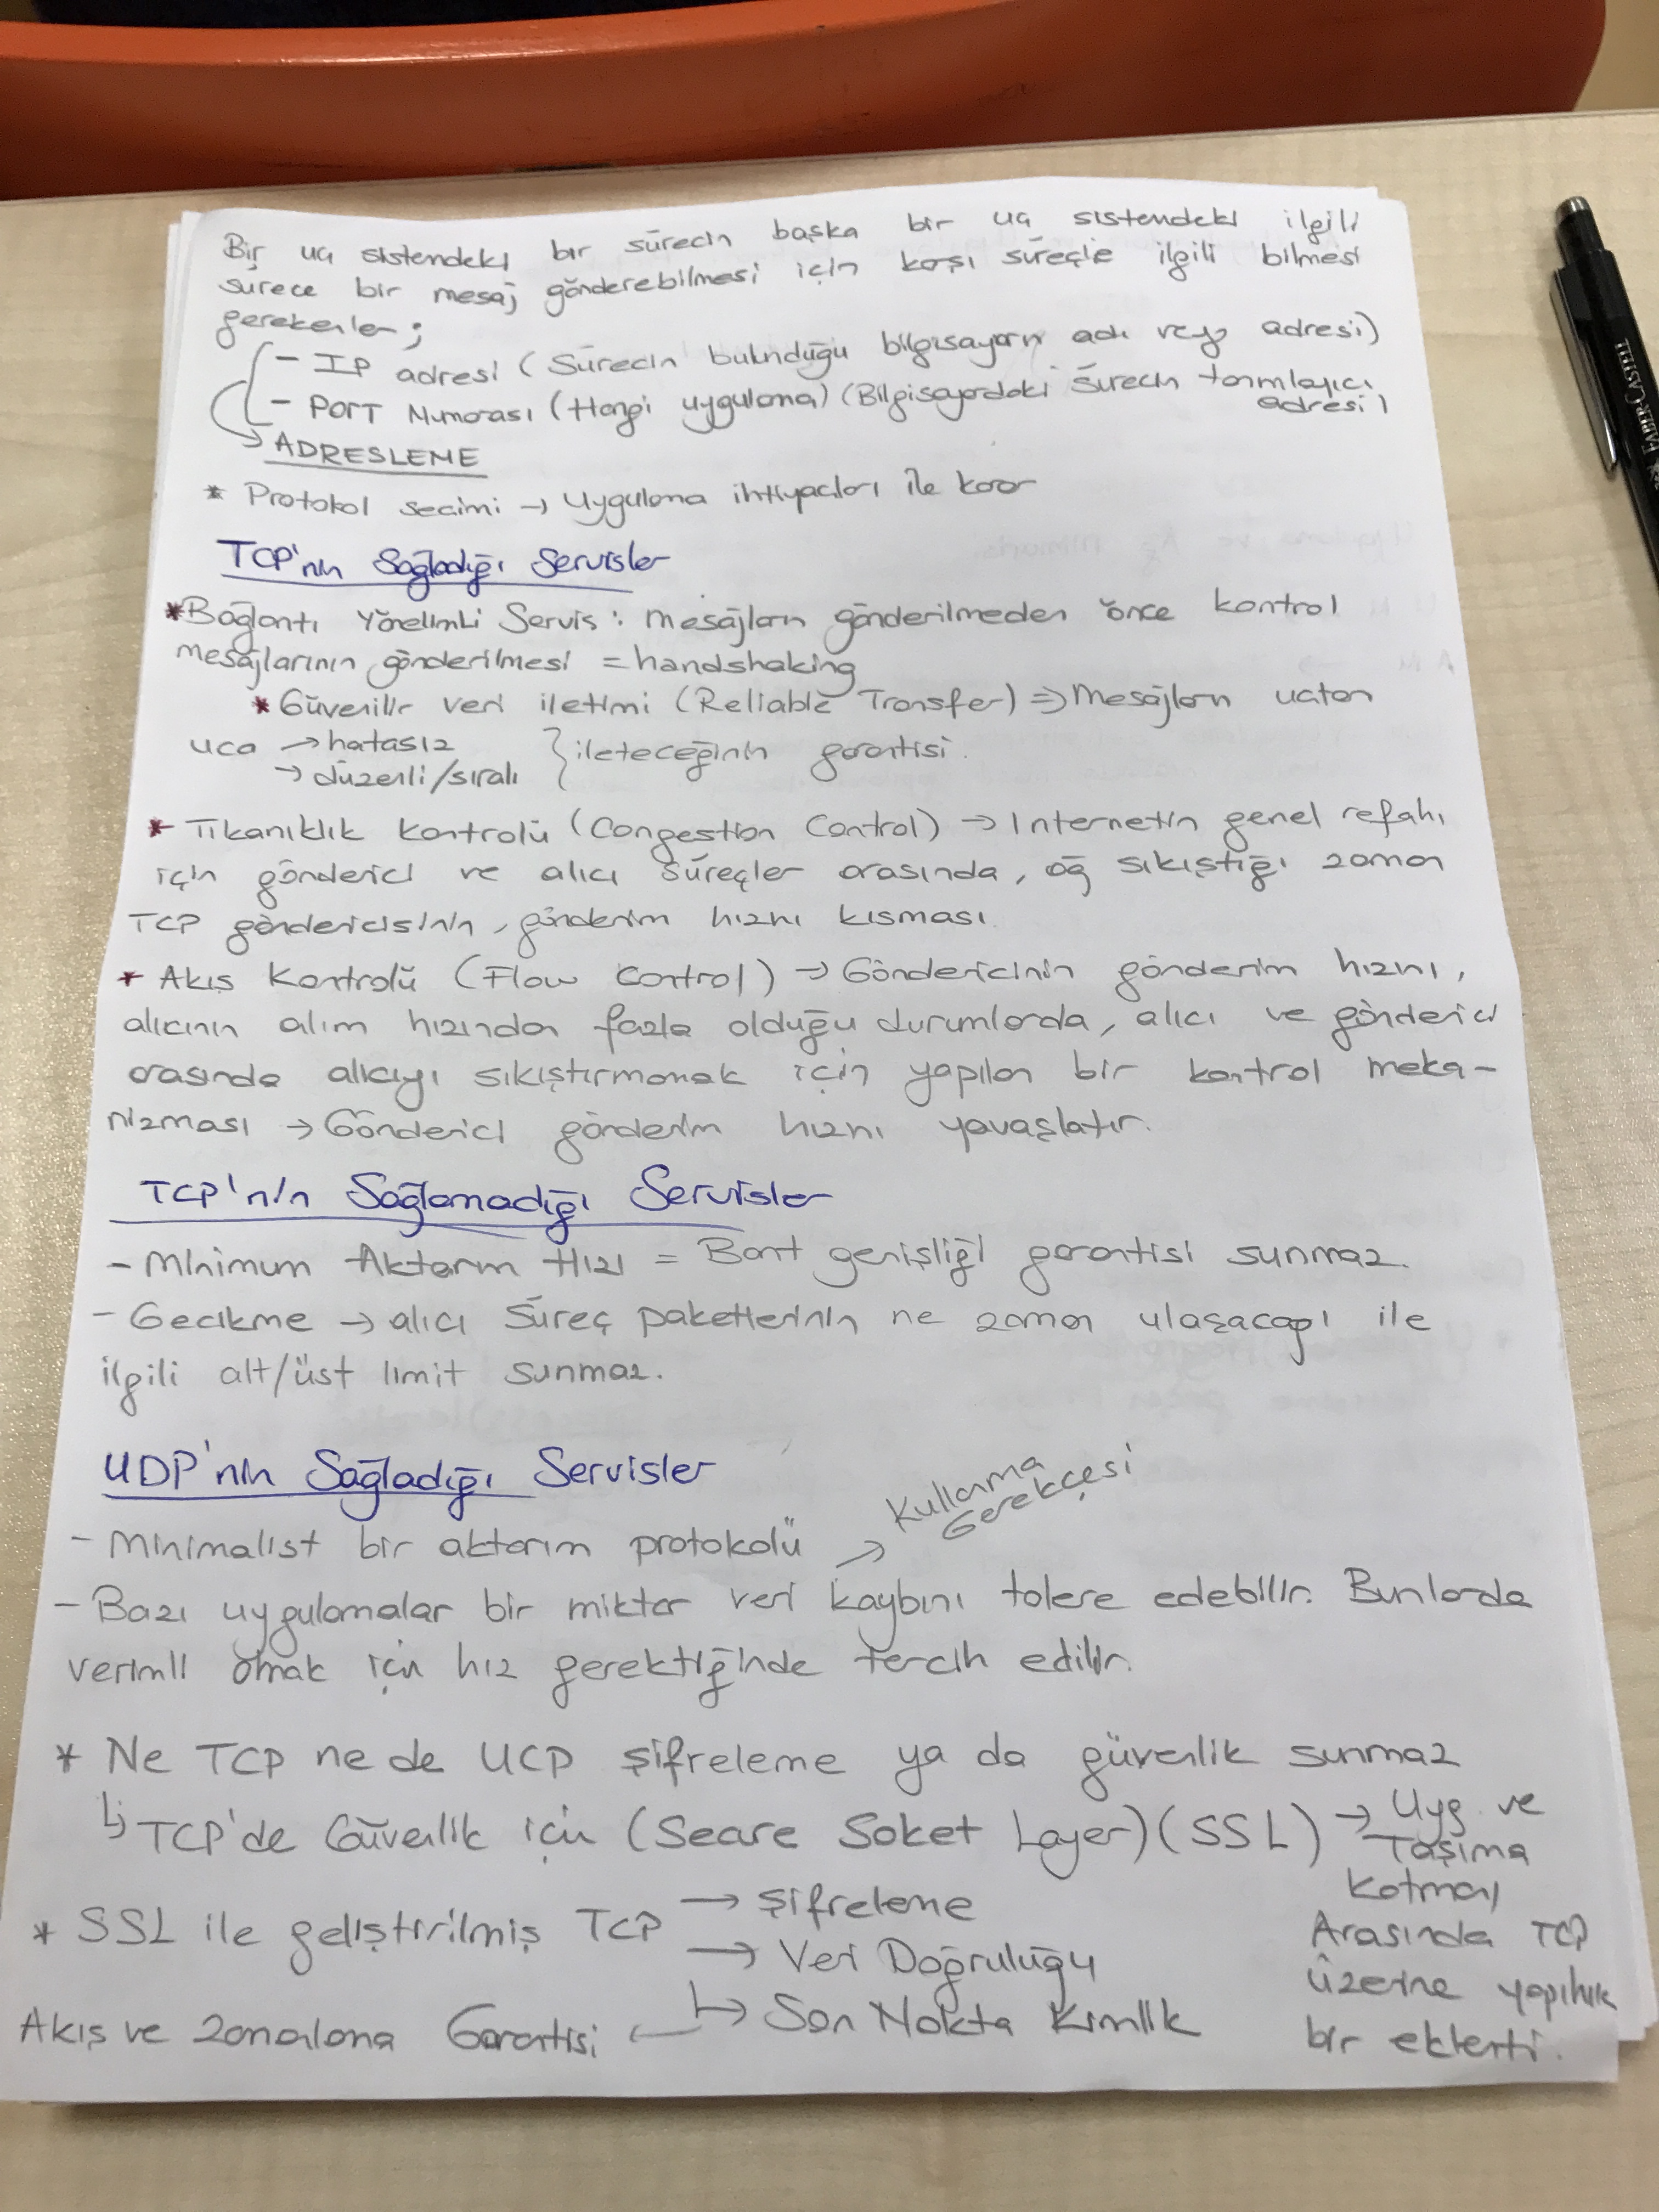 Bir uç sistemdeki bir sürecin başka bir uç sistemdeki ilgili
sürece bir mesaj gönderebilmesi için karşı süreçle ilgili bilmesi
gerekenler;
- IP adresi (Sürecin bulunduğu bilgisayarın adı veya adresi)
- PORT Numarası (Hangi uygulama) (Bilgisayardaki Sürecin tanımlayıcı
adresi)
ADRESLEME
* Protokol seçimi → Uygulama ihtiyaçları ile karar
TCP'nin Sağladığı Servisler
* Bağlantı Yönelimli Servis: Mesajların gönderilmeden önce kontrol
mesajlarının gönderilmesi = handshaking
* Güvenilir veri iletimi (Reliable Transfer) ⇒ Mesajların uçtan
uca → hatasız } ileteceğinin garantisi.
→ düzenli/sıralı
* Tıkanıklık Kontrolü (Congestion Control) → Internetin genel refahı
için gönderici ve alıcı süreçler arasında, ağ sıkıştığı zaman
TCP göndericisinin, gönderim hızını kısması.
* Akış Kontrolü (Flow Control) → Göndericinin gönderim hızını,
alıcının alım hızından fazla olduğu durumlarda, alıcı ve gönderici
arasında alıcıyı sıkıştırmamak için yapılan bir kontrol meka-
nizması → Gönderici gönderim hızını yavaşlatır.
TCP'nin Sağlamadığı Servisler
- Minimum Aktarım Hızı = Bant genişliği garantisi sunmaz.
- Gecikme → alıcı süreç paketlerinin ne zaman ulaşacağı ile
ilgili alt/üst limit sunmaz.
UDP'nin Sağladığı Servisler
- Minimalist bir aktarım protokolü → Kullanma
Gerekçesi
- Bazı uygulamalar bir miktar veri kaybını tolere edebilir. Bunlarda
verimli olmak için hız gerektiğinde tercih edilir.
* Ne TCP ne de UCP şifreleme ya da güvenlik sunmaz
↳ TCP'de Güvenlik için (Secure Soket Layer) (SSL) → Uyg. ve
Taşıma
Katmanı
Arasında TCP
üzerine yapılmış
bir eklenti.
* SSL ile geliştirilmiş TCP → Şifreleme
→ Veri Doğruluğu
↳ Son Nokta Kimlik
Akış ve Zamanlama Garantisi ←